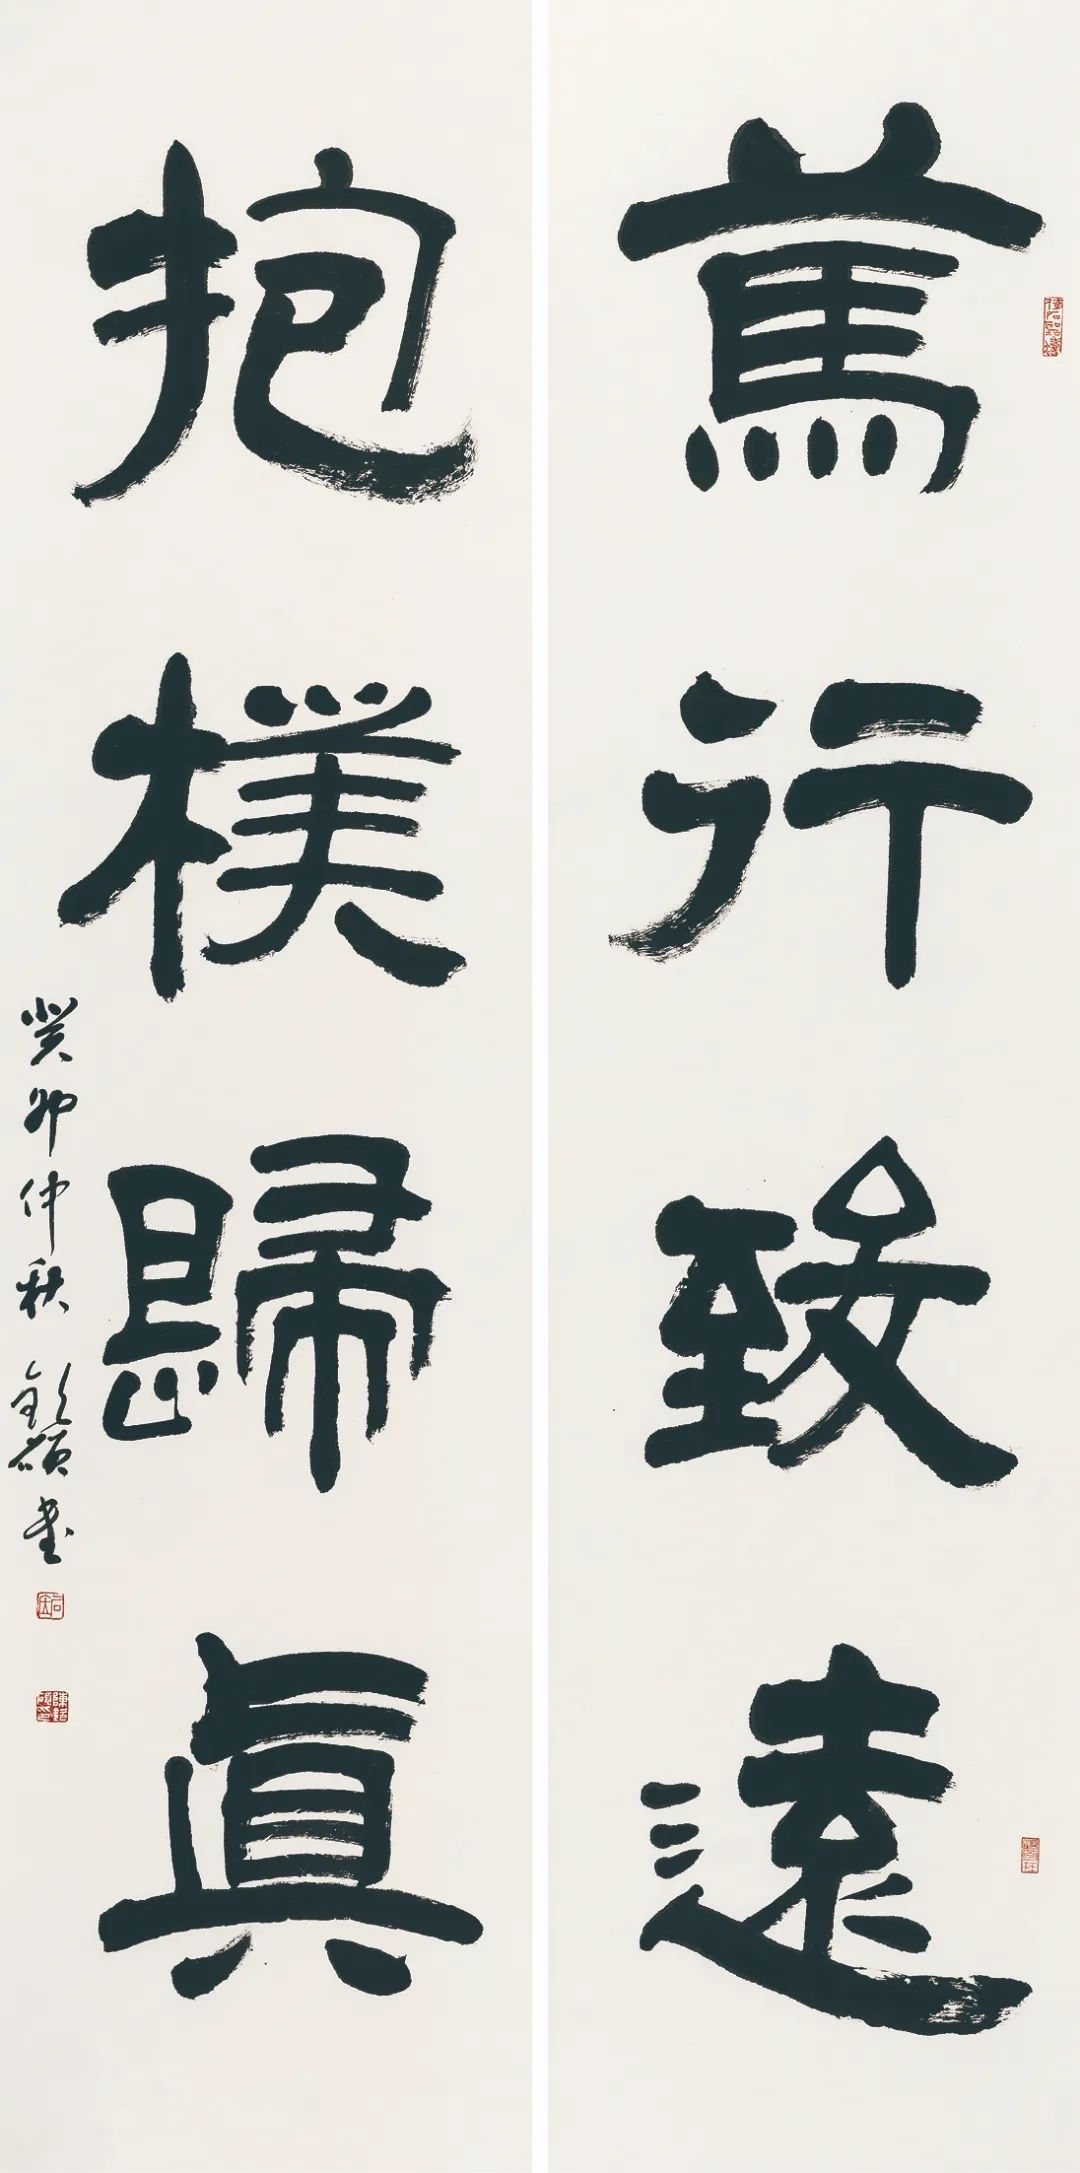 篤行致遠
抱樸歸眞
癸卯仲秋 欽碩書